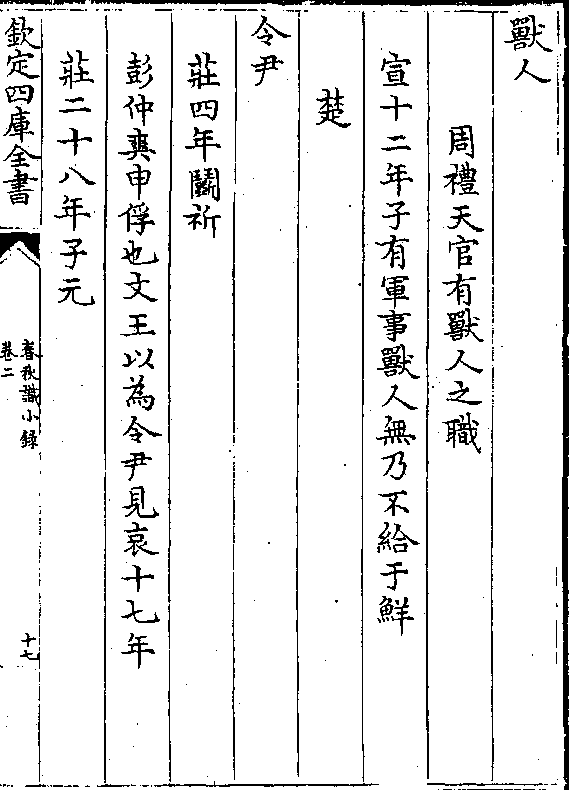 獸人
周禮天官有獸人之職
宣十二年子有軍事獸人無乃不給于鮮
楚
令尹
莊四年鬭祈
彭仲爽申俘也文王以為令尹見哀十七年
莊二十八年子元
欽定四庫全書
春秋識小録
卷二
十七